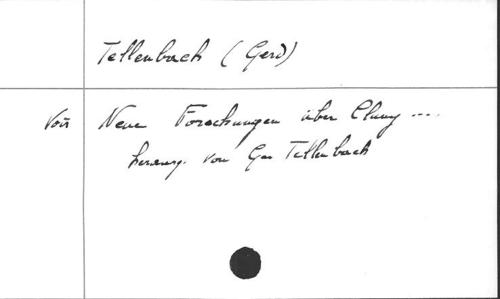 Tellenbach (Gerd)
Voir Neue Forschungen über Cluny ....
herausg. von Ger Tellenbach